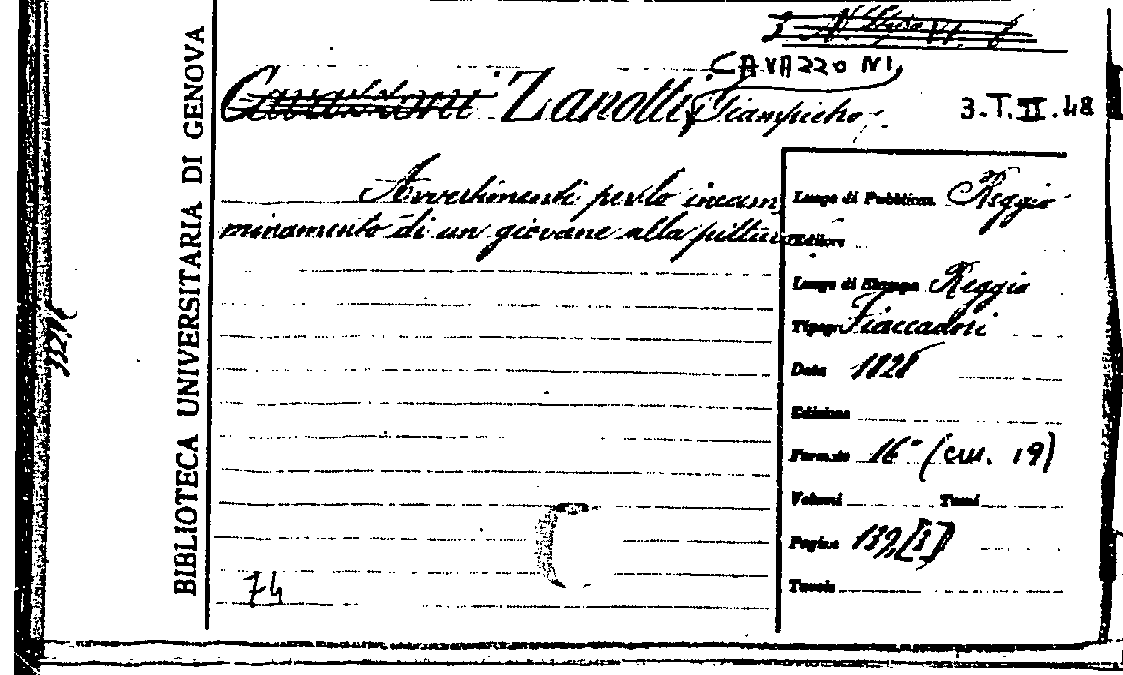 BIBLIOTECA UNIVERSITARIA DI GENOVA
CAVAZZONI,
Cavazzoni Zanotti Giampietro
3.T.II.48
Avvertimenti per lo incam
minamento di un giovane alla pittura
Luogo di Pubblicaz. Reggio
Editore
Luogo di Stampa Reggio
Tipogr. Fiaccadori
Data 1828
Edizione
Formato 16° (cm. 19)
Volumi Tomi
Pagine 139,[3]
Tavole
74